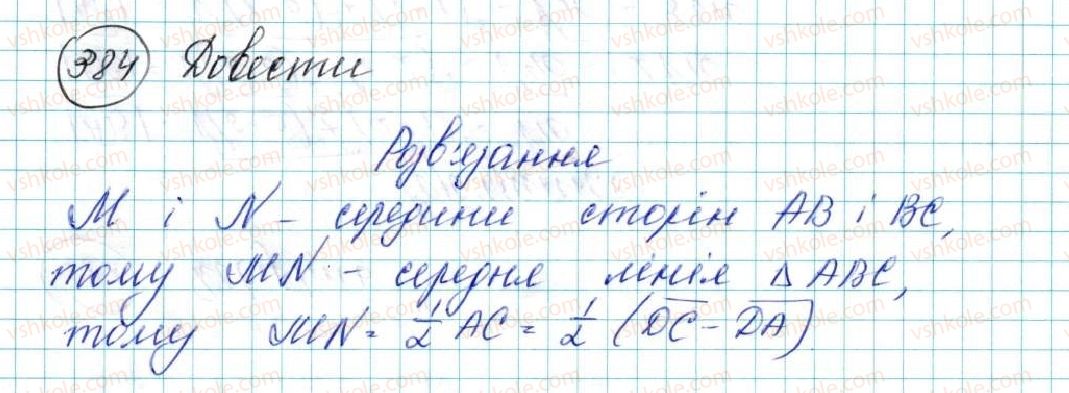 384 Довести
Розв'язання
M і N - середини сторін AB і BC,
тому MN - середня лінія △ABC,
тому MN = 1/2 AC = 1/2 (D͞C͞ - D͞A͞)